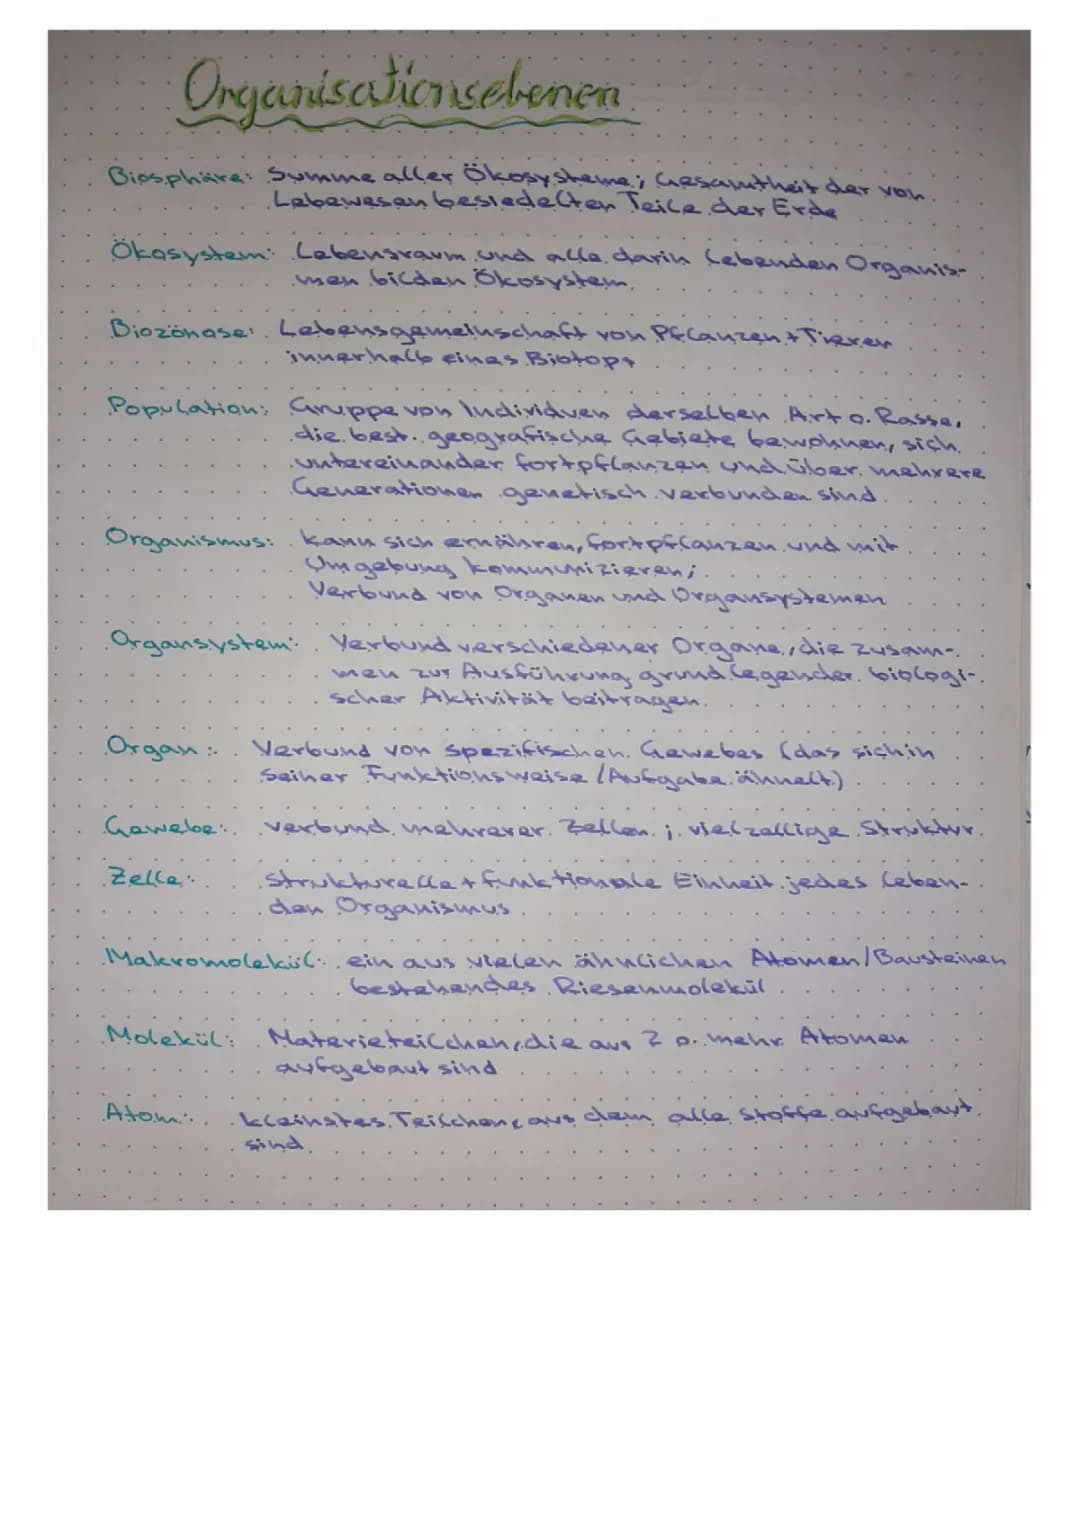 Organisationsebenen
Biosphäre: Summe aller Ökosysteme; Gesamtheit der von
Lebewesen besiedelten Teile der Erde
Ökosystem: Lebensraum und alle darin lebenden Organis-
men bilden Ökosystem.
Biozönose: Lebensgemeinschaft von Pflanzen + Tieren
innerhalb eines Biotops
Population: Gruppe von Individuen derselben Art o. Rasse,
die best. geografische Gebiete bewohnen, sich
untereinander fortpflanzen und über mehrere
Generationen genetisch verbunden sind.
Organismus: kann sich ernähren, fortpflanzen und mit
Umgebung kommunizieren;
Verbund von Organen und Organsystemen
Organsystem: Verbund verschiedener Organe, die zusam-
men zur Ausführung grundlegender biologi-
scher Aktivität beitragen.
Organ: Verbund von spezifischen Gewebes (das sich in
seiner Funktionsweise / Aufgabe ähnelt)
Gewebe: Verbund mehrerer Zellen; vielzellige Struktur.
Zelle: Strukturelle + funktionale Einheit jedes leben-
den Organismus
Makromolekül: ein aus vielen ähnlichen Atomen/Bausteinen
bestehendes Riesenmolekül
Molekül: Materieteilchen, die aus 2 o. mehr Atomen
aufgebaut sind
Atom: kleinstes Teilchen, aus dem alle Stoffe aufgebaut
sind.